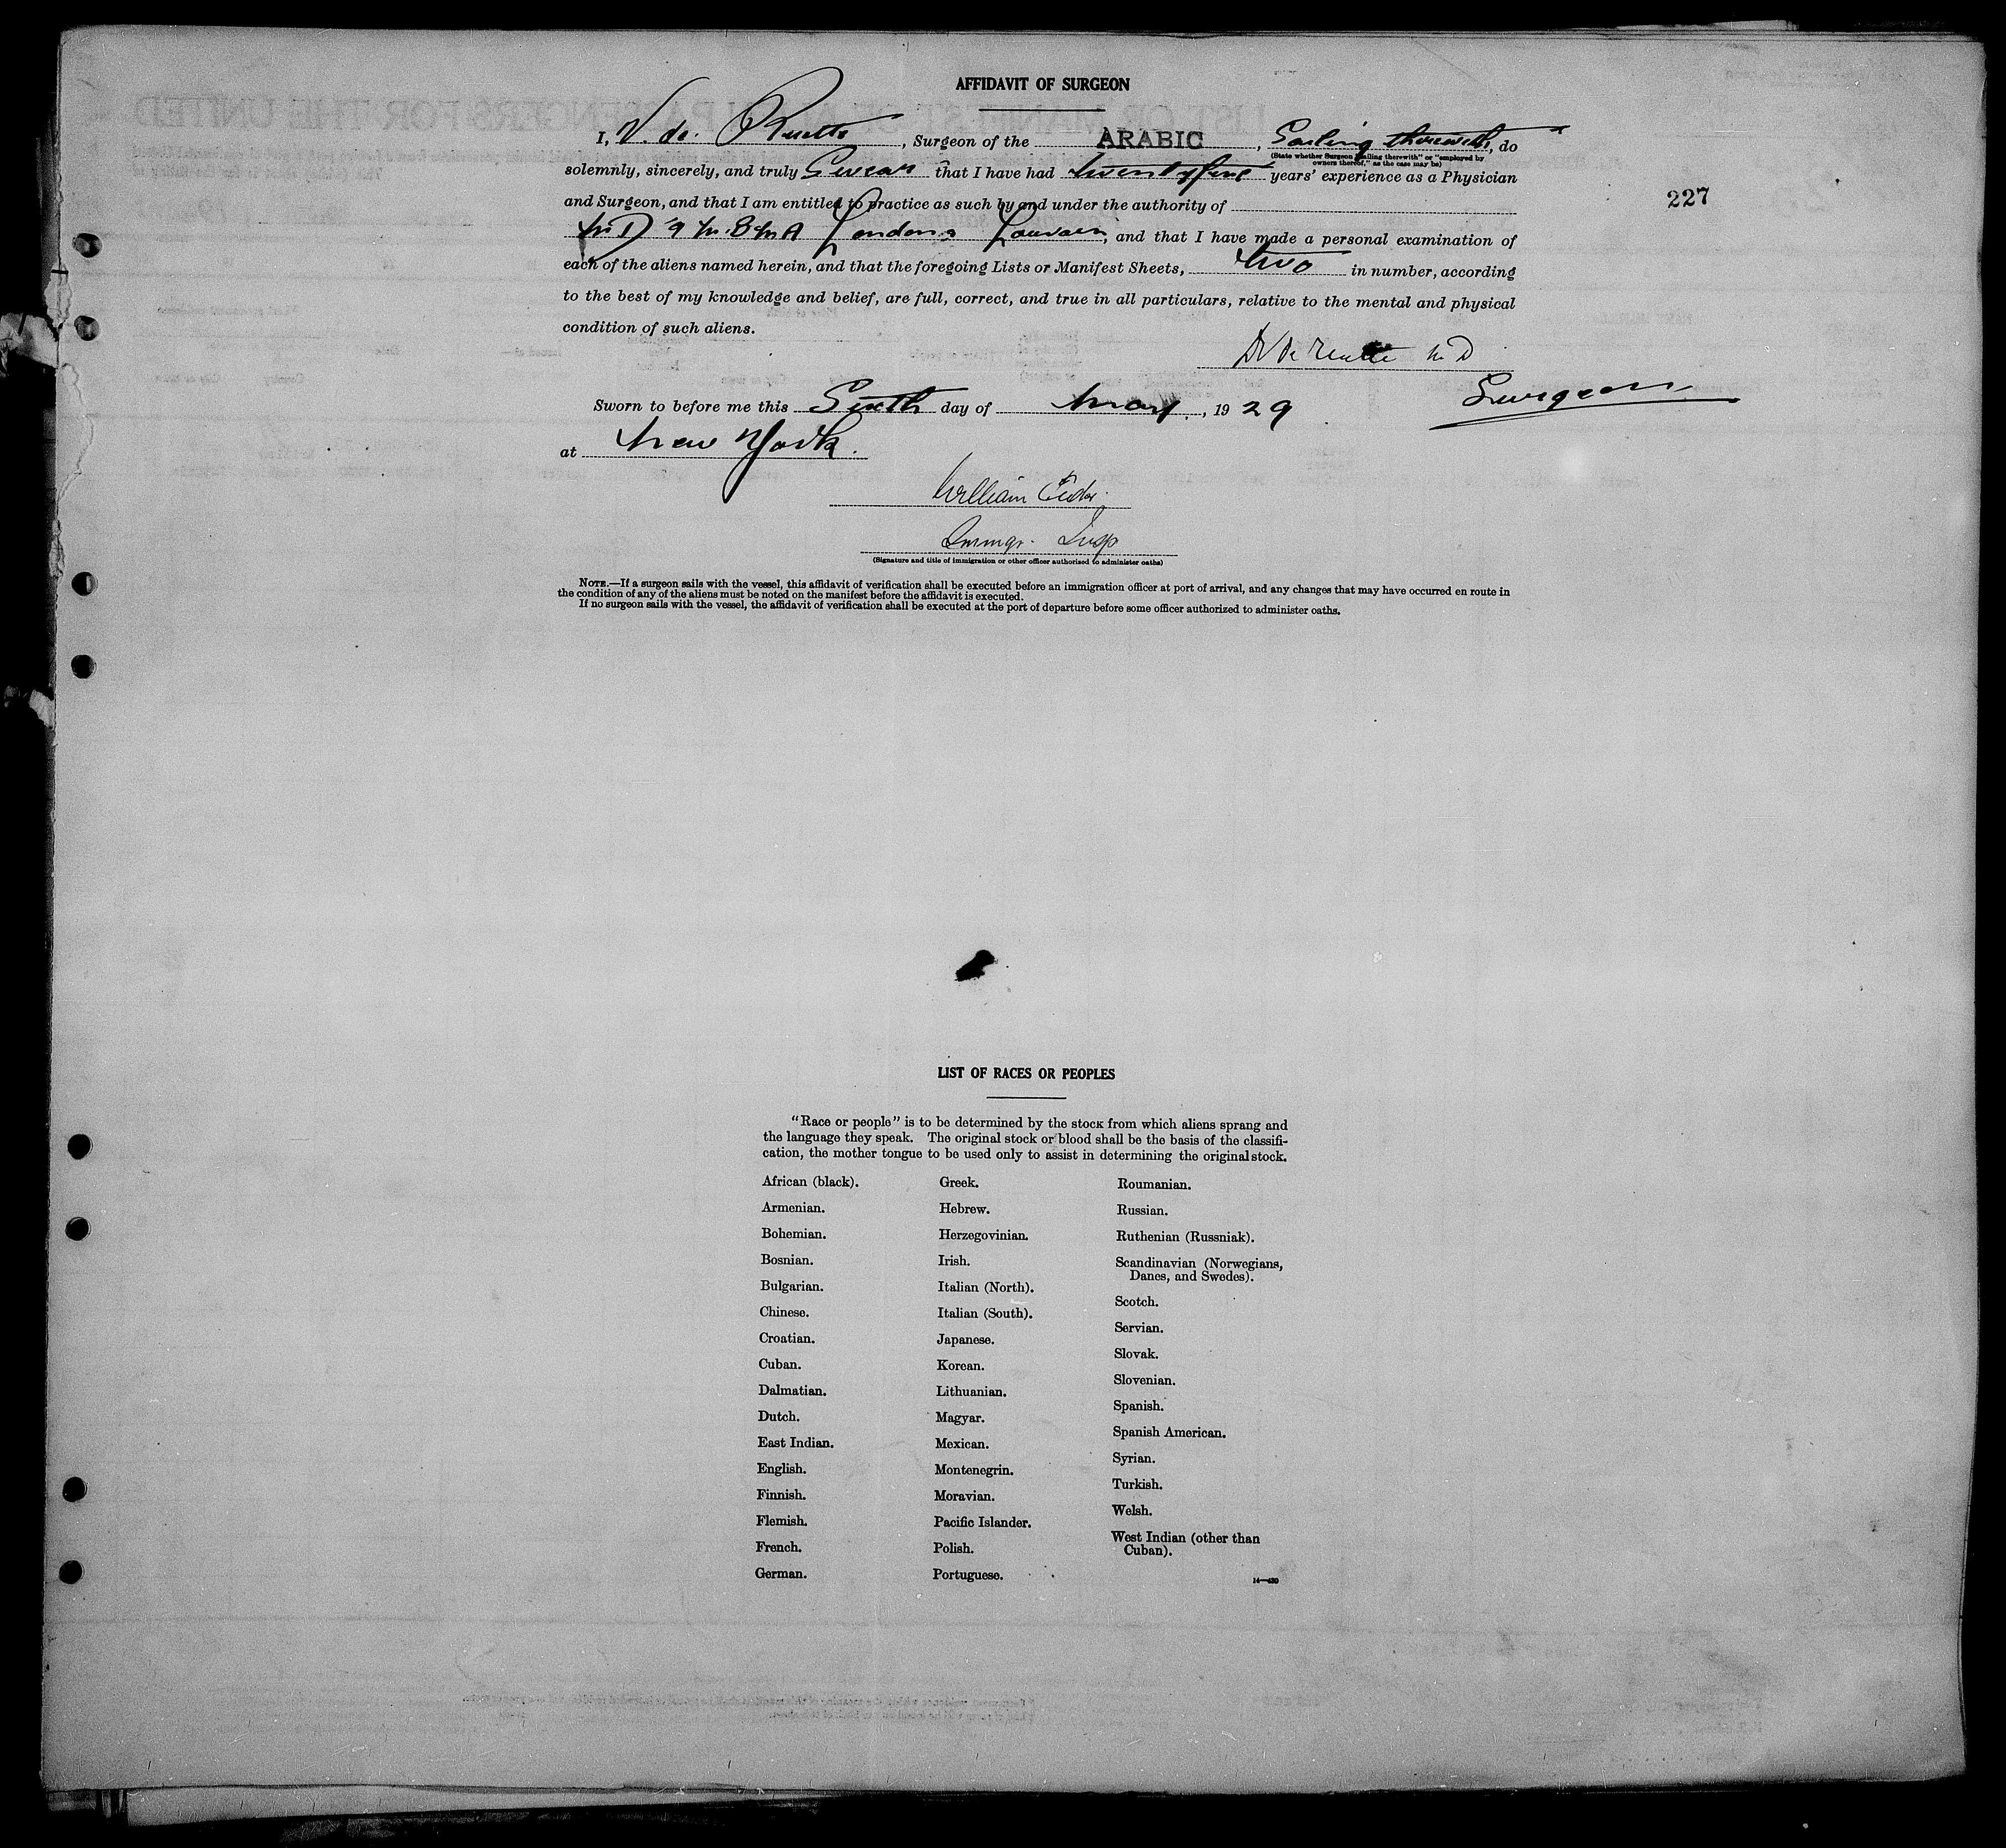 AFFIDAVIT OF SURGEON
I, V. de , Surgeon of the ARABIC, Sailing therewith, do
(State whether Surgeon "sailing therewith" or "employed by
owners thereof," as the case may be)
solemnly, sincerely, and truly Swear that I have had twenty five years' experience as a Physician
227
and Surgeon, and that I am entitled to practice as such by and under the authority of
London & Louvain, and that I have made a personal examination of
each of the aliens named herein, and that the foregoing Lists or Manifest Sheets, two in number, according
to the best of my knowledge and belief, are full, correct, and true in all particulars, relative to the mental and physical
condition of such aliens.
M D
Surgeon
Sworn to before me this Sixth day of May, 1929
at New York.
William
Immgr. Insp
(Signature and title of immigration or other officer authorized to administer oaths)
NOTE.—If a surgeon sails with the vessel, this affidavit of verification shall be executed before an immigration officer at port of arrival, and any changes that may have occurred en route in
the condition of any of the aliens must be noted on the manifest before the affidavit is executed.
If no surgeon sails with the vessel, the affidavit of verification shall be executed at the port of departure before some officer authorized to administer oaths.
LIST OF RACES OR PEOPLES
"Race or people" is to be determined by the stock from which aliens sprang and
the language they speak. The original stock or blood shall be the basis of the classifi-
cation, the mother tongue to be used only to assist in determining the original stock.
African (black).
Armenian.
Bohemian.
Bosnian.
Bulgarian.
Chinese.
Croatian.
Cuban.
Dalmatian.
Dutch.
East Indian.
English.
Finnish.
Flemish.
French.
German.
Greek.
Hebrew.
Herzegovinian.
Irish.
Italian (North).
Italian (South).
Japanese.
Korean.
Lithuanian.
Magyar.
Mexican.
Montenegrin.
Moravian.
Pacific Islander.
Polish.
Portuguese.
Roumanian.
Russian.
Ruthenian (Russniak).
Scandinavian (Norwegians,
Danes, and Swedes).
Scotch.
Servian.
Slovak.
Slovenian.
Spanish.
Spanish American.
Syrian.
Turkish.
Welsh.
West Indian (other than
Cuban).